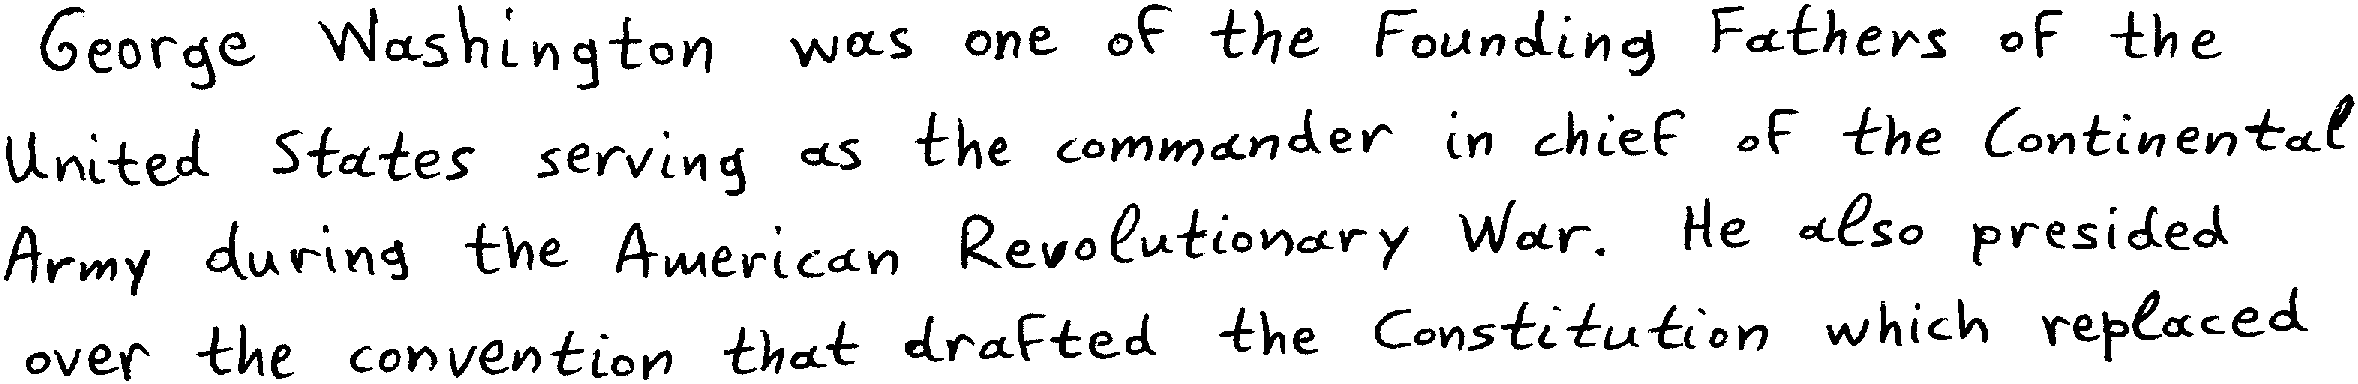 George Washington was one of the Founding Fathers of the
United States serving as the commander in chief of the Continental
Army during the American Revolutionary War. He also presided
over the convention that drafted the Constitution which replaced